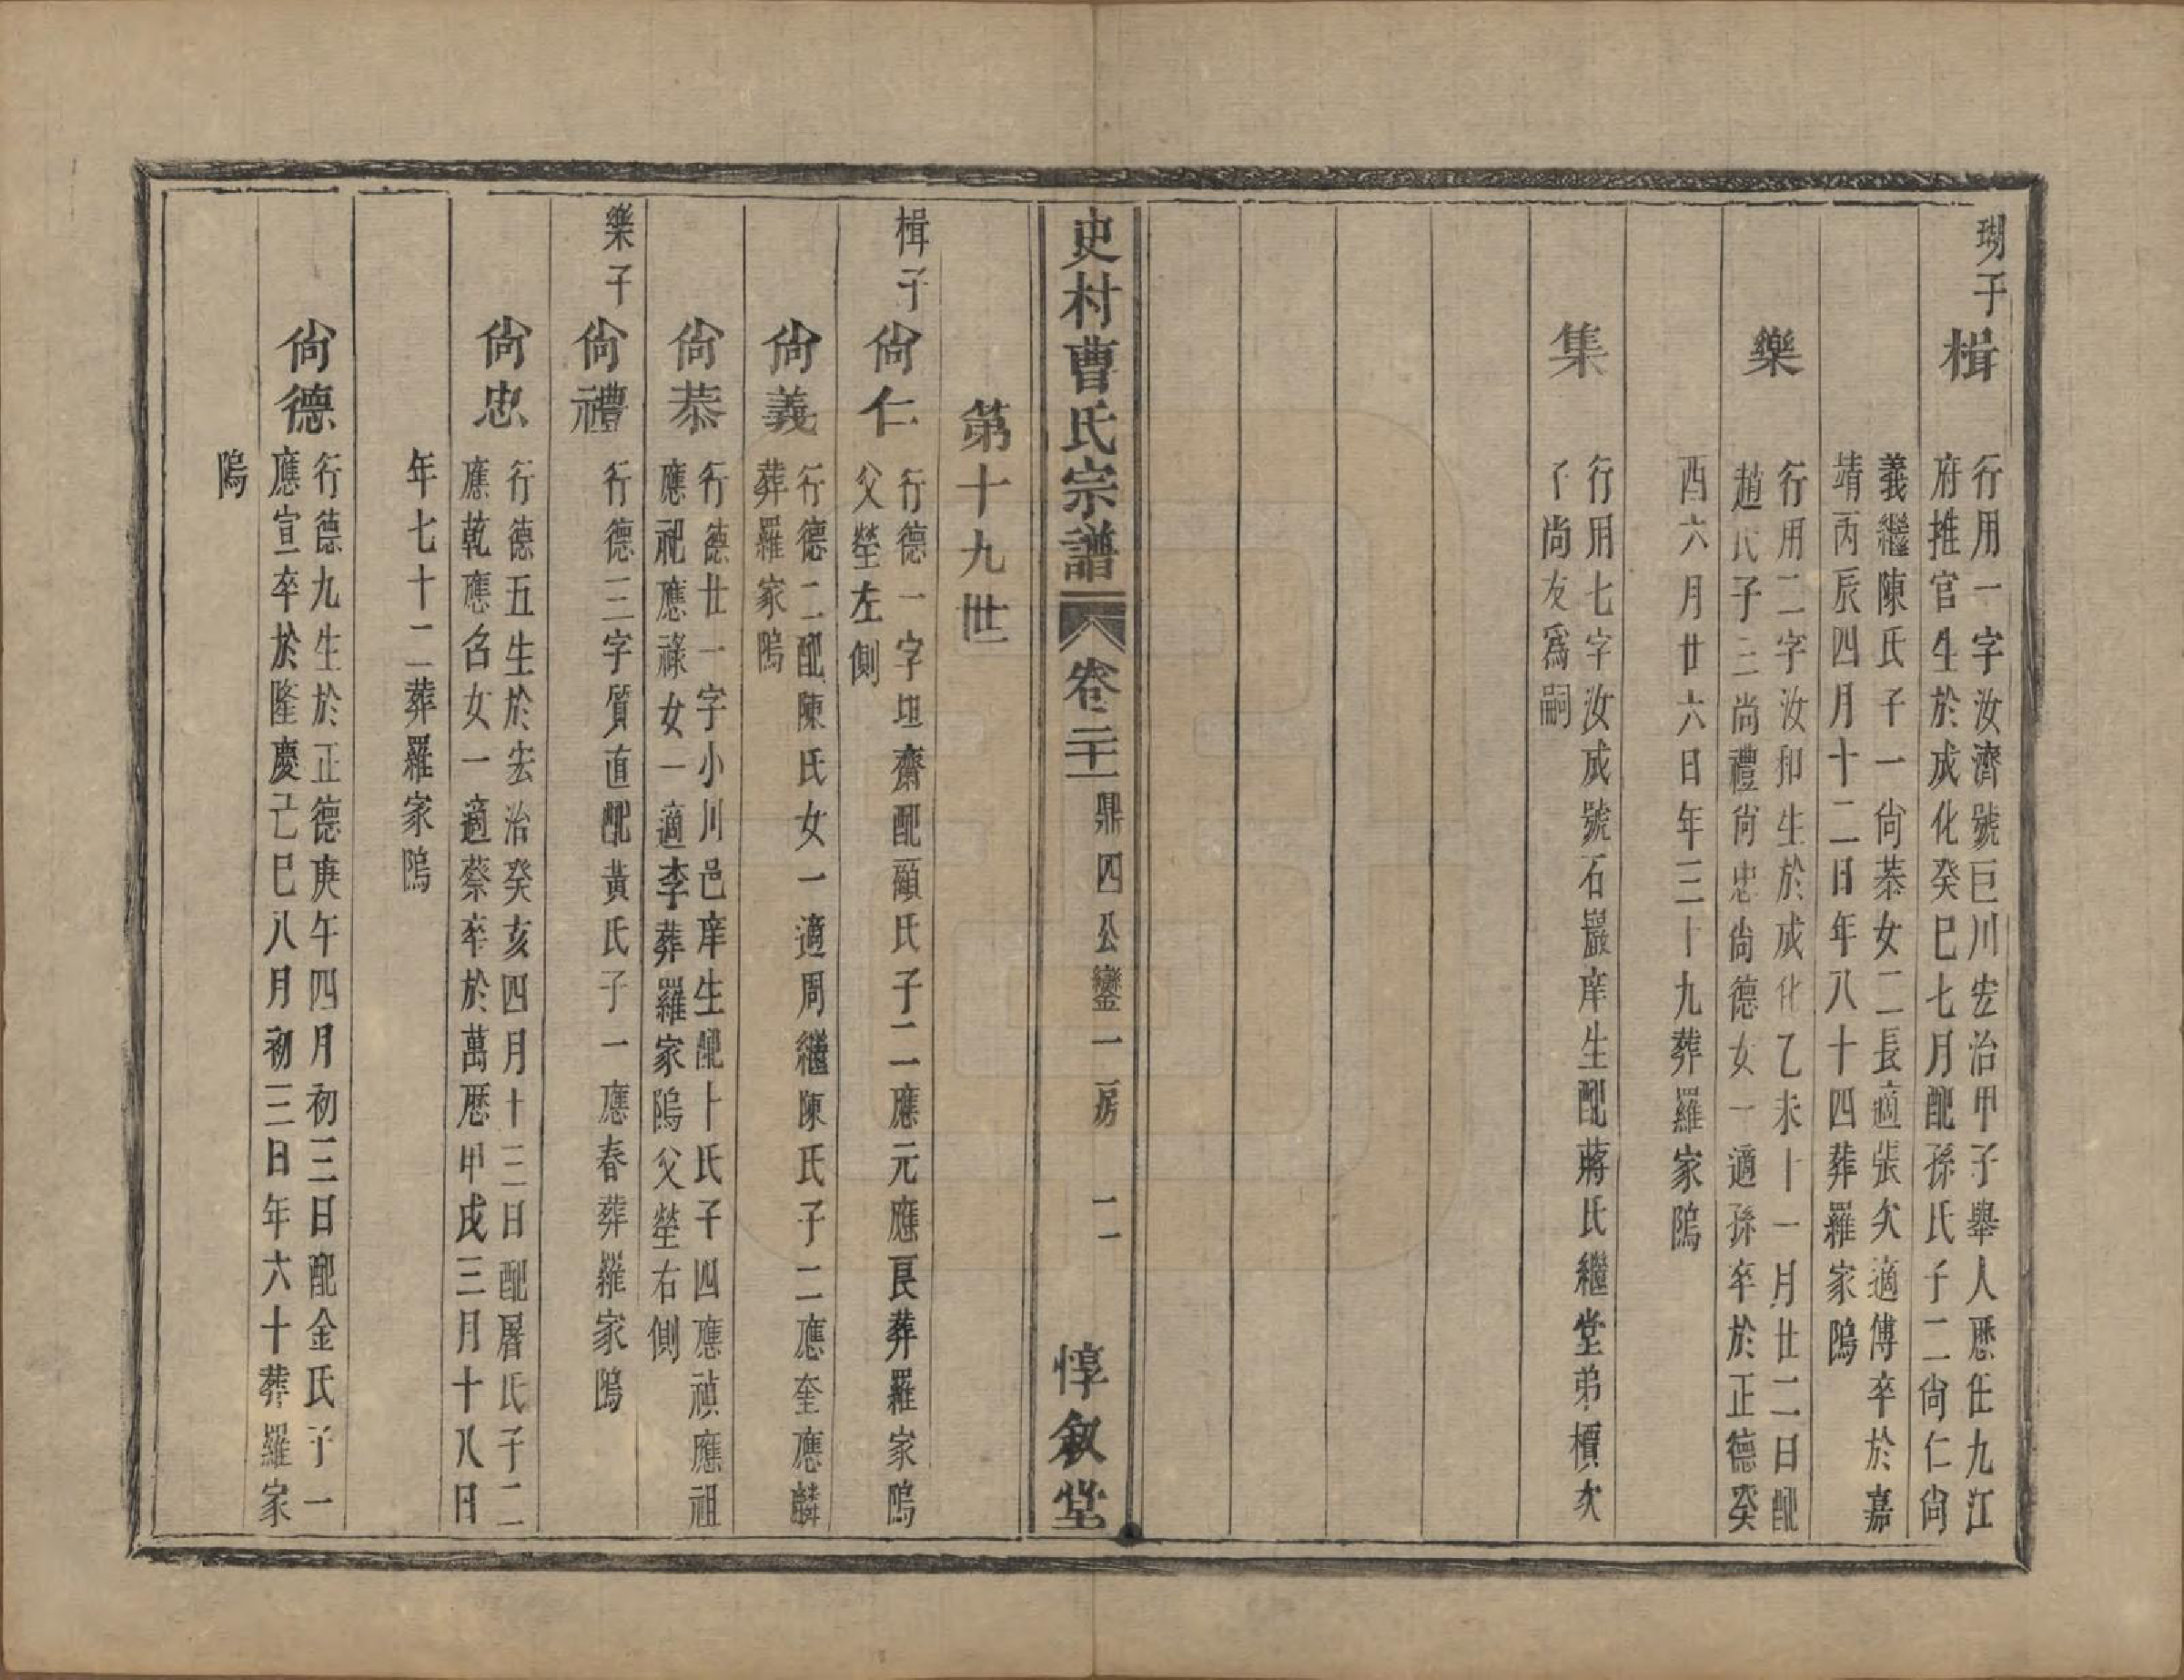 瑚子
楫
行用一字汝濟號巨川宏治甲子舉人歷任九江
府推官生於成化癸巳七月配孫氏子二尙仁尙
義繼陳氏子一尙恭女二長適張次適傅卒於嘉
靖丙辰四月十二日年八十四葬羅家隖
樂
行用二字汝和生於成化乙未十一月廿二日配
趙氏子三尚禮尙忠尙德女一適孫卒於正德癸
酉六月廿六日年三十九葬羅家隖
集
行用七字汝成號石巖庠生配蔣氏繼堂弟檟次
子尚友爲嗣
史村曹氏宗譜
卷二十一
鼎四公鑾一房
一一
惇敘堂
第十九世
楫子
尙仁
行德一字坦齋配顧氏子二應元應良葬羅家隖
父塋左側
尙義
行德二配陳氏女一適周繼陳氏子二應奎應麟
葬羅家隖
尙恭
行德廿一字小川邑庠生配卜氏子四應禎應祖
應祀應祿女一適李葬羅家隖父塋右側
樂子
尙禮
行德三字質直配黃氏子一應春葬羅家隖
尙忠
行德五生於宏治癸亥四月十三日配屠氏子二
應乾應名女一適蔡卒於萬歷甲戌三月十八日
年七十二葬羅家隖
尙德
行德九生於正德庚午四月初三日配金氏子一
應宣卒於隆慶己巳八月初三日年六十葬羅家
隖